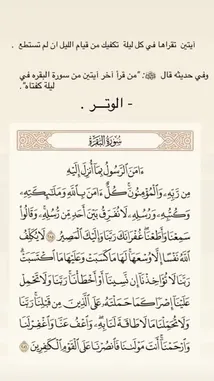 آيتين تقرأها في كل ليلة تكفيك من قيام الليل ان لم تستطع .
وفي حديثه قال ﷺ: "من قرأ آخر آيتين من سورة البقره في
ليلة كفتاه".
- الوتـر .
سُورَةُ البَقَرَةِ
ءَامَنَ الرَّسُولُ بِمَا أُنزِلَ إِلَيْهِ
مِن رَّبِّهِ وَالْمُؤْمِنُونَ كُلٌّ ءَامَنَ بِاللَّهِ وَمَلَٰئِكَتِهِ
وَكُتُبِهِ وَرُسُلِهِ لَا نُفَرِّقُ بَيْنَ أَحَدٍ مِّن رُّسُلِهِ وَقَالُوا
سَمِعْنَا وَأَطَعْنَا غُفْرَانَكَ رَبَّنَا وَإِلَيْكَ الْمَصِيرُ ٢٨٥ لَا يُكَلِّفُ
اللَّهُ نَفْسًا إِلَّا وُسْعَهَا لَهَا مَا كَسَبَتْ وَعَلَيْهَا مَا اكْتَسَبَتْ
رَبَّنَا لَا تُؤَاخِذْنَا إِن نَّسِينَا أَوْ أَخْطَأْنَا رَبَّنَا وَلَا تَحْمِلْ
عَلَيْنَا إِصْرًا كَمَا حَمَلْتَهُ عَلَى الَّذِينَ مِن قَبْلِنَا رَبَّنَا
وَلَا تُحَمِّلْنَا مَا لَا طَاقَةَ لَنَا بِهِ وَاعْفُ عَنَّا وَاغْفِرْ لَنَا
وَارْحَمْنَا أَنتَ مَوْلَانَا فَانصُرْنَا عَلَى الْقَوْمِ الْكَافِرِينَ ٢٨٦